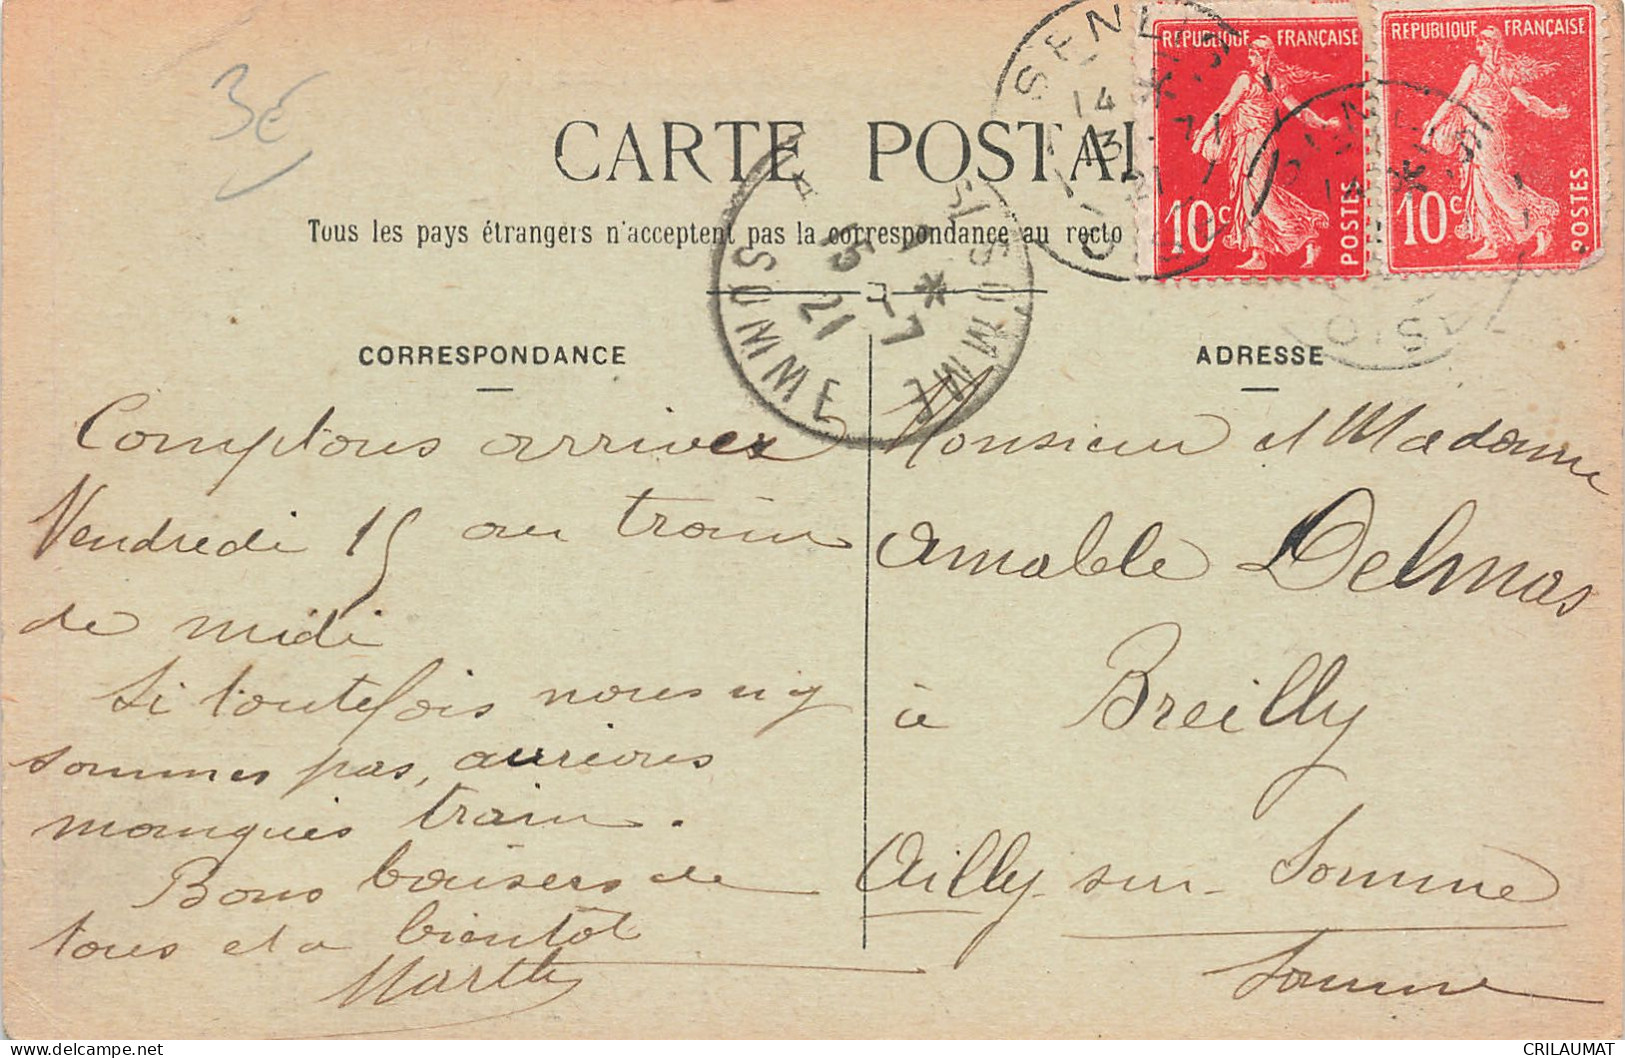 3€
CARTE POSTAL
Tous les pays étrangers n'acceptent pas la correspondance au recto
SENLIS
14
13-7
21
OISE
REPUBLIQUE FRANÇAISE
10c
POSTES
REPUBLIQUE FRANÇAISE
10c
POSTES
OISE
SOMME
15-7
21
CORRESPONDANCE
Comptons arriver
Vendredi 15 au train
de midi
Si toutefois nous n'y
sommes pas, aurions
manqués train.
Bons baisers de
tous et a bientôt
Marthe
ADRESSE
Monsieur et Madame
Amable Delmas
à Breilly
Ailly-sur-Somme
Somme
CRILAUMAT